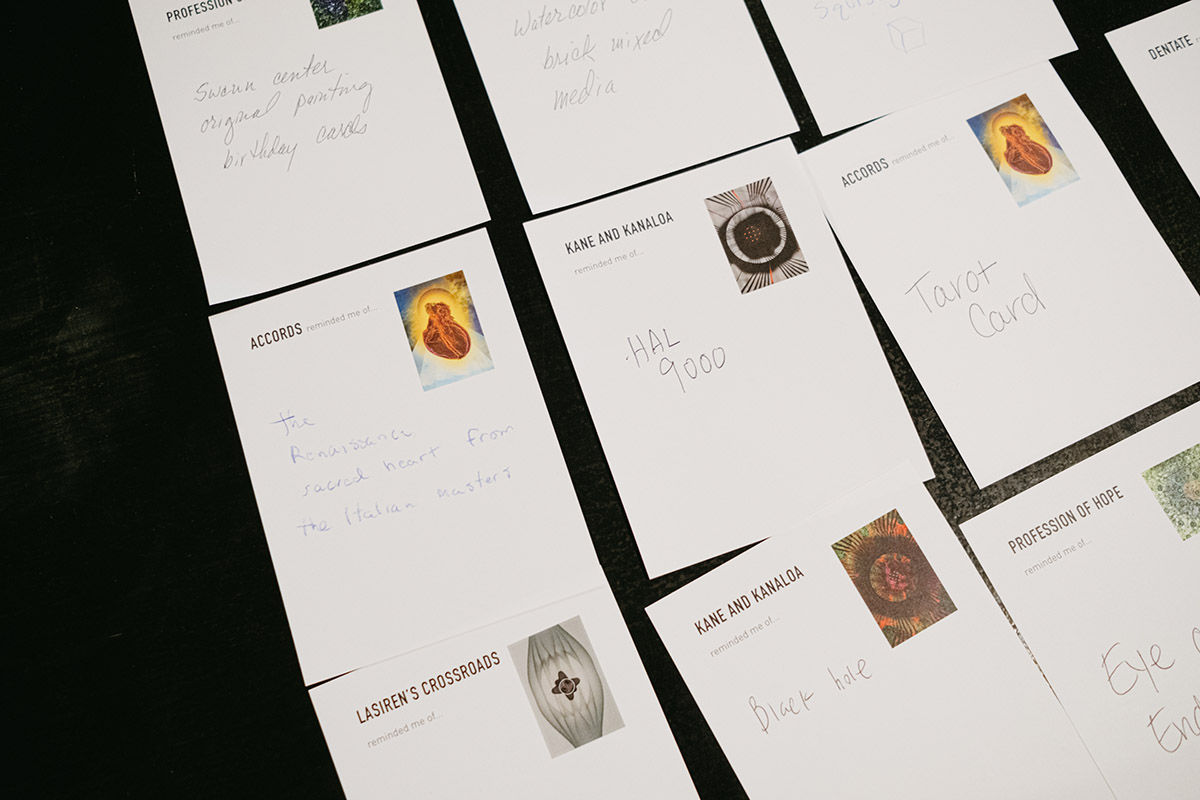 PROFESSION
reminded me of...
Swann center
original painting
birthday cards
Watercolor
brick mixed
media
DENTATE
ACCORDS reminded me of...
Tarot
Card
KANE AND KANALOA
reminded me of...
HAL
9000
ACCORDS reminded me of...
the
Renaissance
sacred heart from
the Italian masters
PROFESSION OF HOPE
reminded me of...
Eye
KANE AND KANALOA
reminded me of...
Black hole
LASIREN'S CROSSROADS
reminded me of...